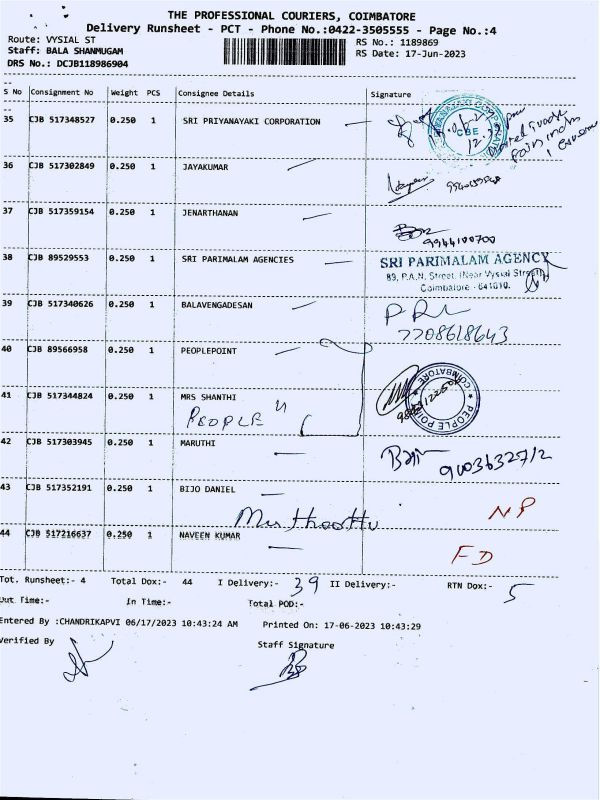 THE PROFESSIONAL COURIERS, COIMBATORE
Delivery Runsheet - PCT - Phone No.:0422-3505555 - Page No.:4
Route: VYSIAL ST
RS No.: 1189869
Staff: BALA SHANMUGAM
RS Date: 17-Jun-2023
DRS No.: DCJB118986904
S No Consignment No Weight PCS Consignee Details Signature
35 CJB 517348527 0.250 1 SRI PRIYANAYAKI CORPORATION
CBE
36 CJB 517302849 0.250 1 JAYAKUMAR
37 CJB 517359154 0.250 1 JENARTHANAN
9944100700
38 CJB 89529553 0.250 1 SRI PARIMALAM AGENCIES
SRI PARIMALAM AGENCY
89, P.A.N. Street, (Near Vysial Street)
Coimbatore - 641010.
39 CJB 517340626 0.250 1 BALAVENGADESAN
7708618643
40 CJB 89566958 0.250 1 PEOPLEPOINT
COIMBATORE
PEOPLE POINT
41 CJB 517344824 0.250 1 MRS SHANTHI
PEOPLE "
42 CJB 517303945 0.250 1 MARUTHI
9003632712
43 CJB 517352191 0.250 1 BIJO DANIEL
Muthoottu
NP
44 CJB 517216637 0.250 1 NAVEEN KUMAR
FD
Tot. Runsheet:- 4 Total Dox:- 44 I Delivery:- 39 II Delivery:- RTN Dox:- 5
Out Time:- In Time:- Total POD:-
Entered By :CHANDRIKAPVI 06/17/2023 10:43:24 AM Printed On: 17-06-2023 10:43:29
Verified By
Staff Signature